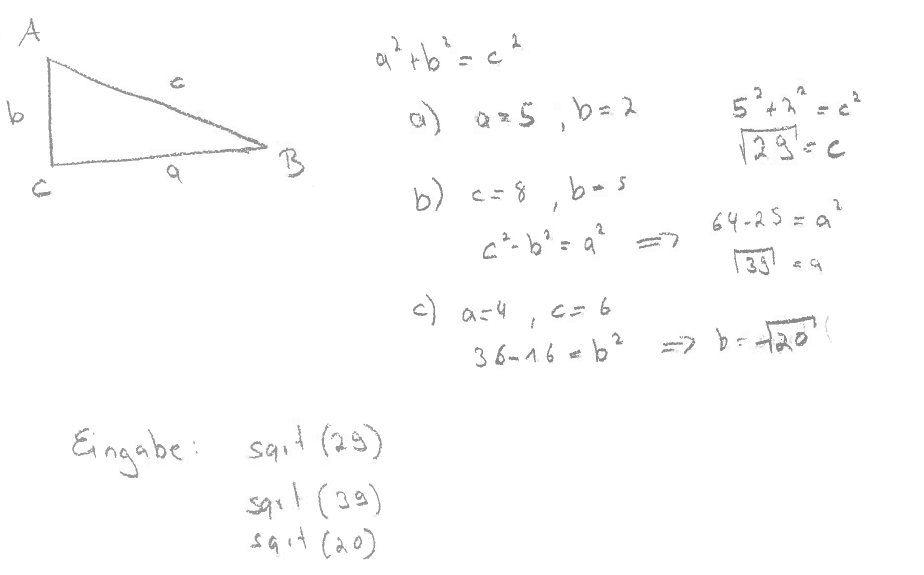 A
c
b
B
C
a
a²+b² = c²
a) a=5, b=2 5²+2² = c²
√29 = c
b) c=8, b=5
c²-b² = a² => 64-25 = a²
√39 = a
c) a=4, c=6
36-16 = b² => b=√20
Eingabe: sqrt (29)
sqrt (39)
sqrt (20)